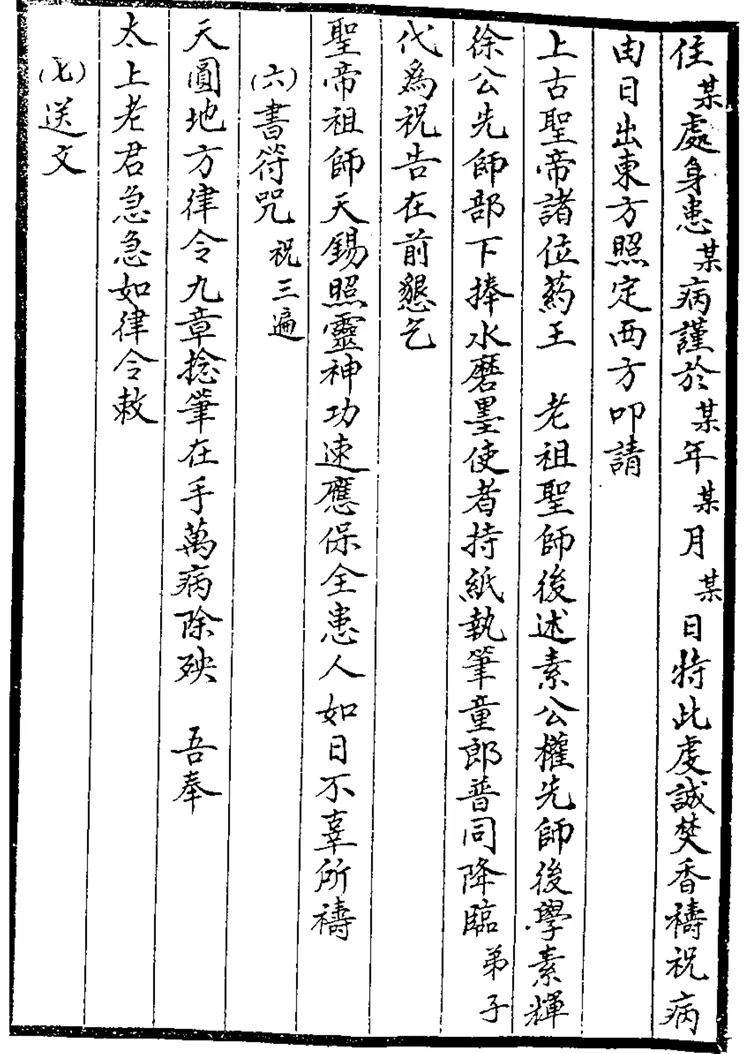 住某處身患某病謹於某年某月某日特此虔誠焚香禱祝病
由日出東方照定西方叩請
上古聖帝諸位葯王　老祖聖師後述素公權先師後學素輝
徐公先師部下捧水磨墨使者持紙執筆童郎普同降臨弟子
代為祝告在前懇乞
聖帝祖師天錫照靈神功速應保全患人如日不辜所禱
(六)書符咒　祝三遍
天圓地方律令九章捻筆在手萬病除殃　吾奉
太上老君急急如律令敕
(七)送文